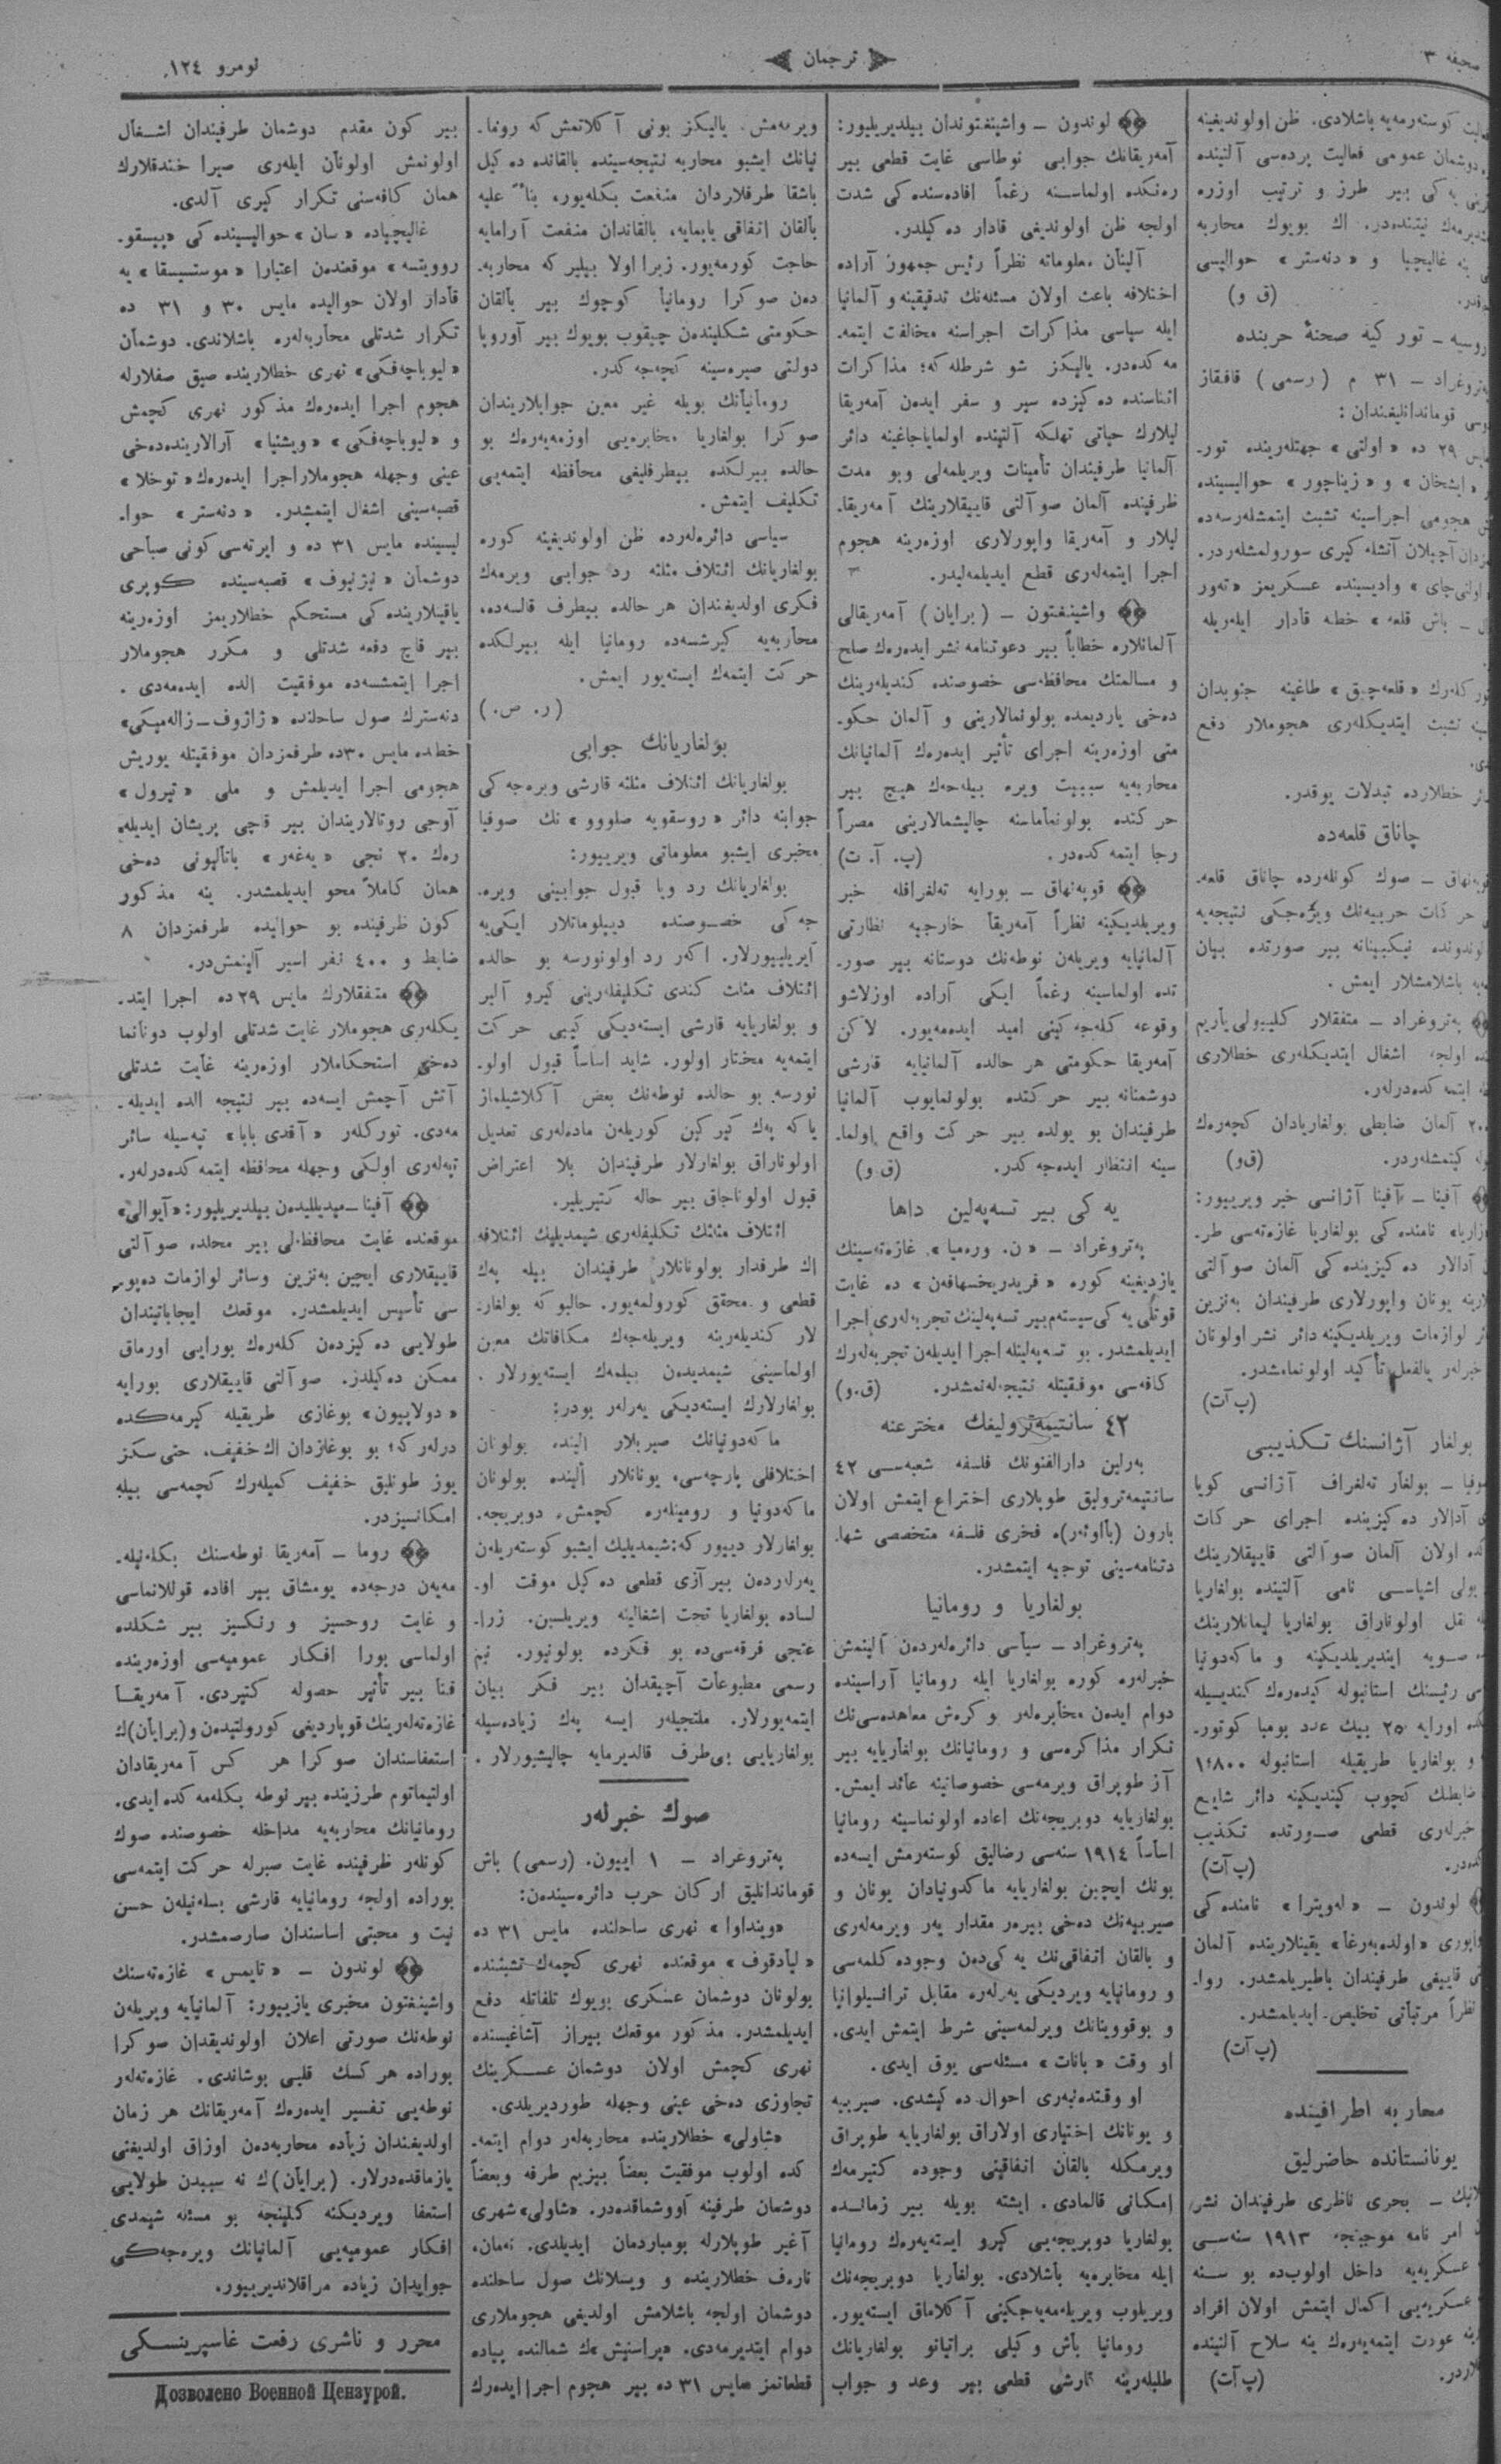 صحیفه ٣
ترجمان
نومرو ١٢٤
كوسترمه‌يه باشلادی. ظن اولونديغينه
دوشمان عمومی فعاليت پرده‌سی آلتينده
يه كی بير طرز و ترتيب اوزره
نيتنده‌در. اك بويوك محاربه
ينه غاليچيا و «دنه‌ستر» حواليسی
(ق و)
روسيه ــ توركيه صحنهٔ حربنده
په‌تروغراد ــ ٣١ م (رسمی) قافقاز
قوماندانليغيندان:
٢٩ ده «اولتی» جهتلرينده تور۔
«ايشخان» و «زيناچور» حواليسينده
هجومی اجراسينه تشبث ايتمشلرسه‌ده
آچيلان آتشله كيری سورولمشلردر.
اولتی چای» واديسينده عسكريمز «ته‌ور
ــ باش قلعه» خطه قادار ايلريله
كلرك «قلعه‌جيق» طاغينه جنوبدان
تشبث ايتديكلری هجوملار دفع
خطلارده تبدلات يوقدر.
چاناق قلعه‌ده
قوپه‌نهاق ــ صوك كونلرده چاناق قلعه۔
حركات حربيه‌نك ويره‌جكی نتيجه‌يه
لوندونده نيكبينانه بير صورتده بيان
باشلامشلار ايمش.
په‌تروغراد ــ متفقلار كليبولی ياريم
اولجه اشغال ايتديكلری خطلاری
ايتمه كده‌درلر.
آلمان ضابطی بولغاريادان كچه‌رك
كيتمشلردر. (ق و)
آفينا ــ آفينا آژانسی خبر ويرييور:
نامنده كی بولغاريا غازه‌ته‌سی طر۔
آدالار ده كيزينده كی آلمان صو آلتی
يونان واپورلاری طرفيندان به‌نزين
لوازمات ويريلديكينه دائر نشر اولونان
خبرلر بالفعل تأكيد اولونمامشدر.
(پ آت)
بولغار آژانسنك تكذيبی
صوفيا ــ بولغار ته‌لغراف آژانسی كويا
آدالار ده كيزينده اجرای حركات
اولان آلمان صو آلتی قاييقلارينك
اشياسی نامی آلتينده بولغاريا
نقل اولوناراق بولغاريا ليمانلارينك
ايندييريلديكينه و ماكه‌دونيا
رئيسنك استانبوله كيده‌رك كنديسيله
اورايه ٢٥٠ بيك عدد بومبا كوتور۔
و بولغاريا طريقيله استانبوله ١٤٨٠٠
ضابطك كچوب كيتديكينه دائر شايع
خبرلری قطعی صورتده تكذيب
(پ آت)
لوندون ــ «له‌ويترا» نامنده كی
واپوری «اولده‌به‌رغا» يقينلارينده آلمان
قاييغی طرفيندان باطيريلمشدر. روا۔
نظراً مرتباتی تخليص ايديلمشدر.
(پ آت)
محاربه اطرافينده
يونانستانده حاضرليق
ــ بحری ناظری طرفيندان نشر
امر نامه موجبنجه ١٩١٣ سنه‌سی
عسكريه‌يه داخل اولوب‌ده بو سنه
عسكريه‌يی اكمال ايتمش اولان افراد
عودت ايتمه‌يه‌رك ينه سلاح آلتينده
(پ آت)
لوندون ــ واشينغتوندان بيلديريلييور:
آمه‌ريقانك جوابی نوطاسی غايت قطعی بير
ره‌نكده اولماسينه رغماً افاده‌سنده كی شدت
اولجه ظن اولونديغی قادار ده كيلدر.
آلينان معلوماته نظراً رئيس جمهور آراده
اختلافه باعث اولان مسئله‌نك تدقيقينه و آلمانيا
ايله سياسی مذاكرات اجراسنه مخالفت ايتمه۔
مه كده‌در. يالكز شو شرطله كه؛ مذاكرات
اثناسنده ده كيزده سير و سفر ايده‌ن آمه‌ريقا
ليلارك حياتی تهلكه آلتينده اولماياجاغينه دائر
آلمانيا طرفيندان تأمينات ويريلمه‌لی وبو مدت
ظرفينده آلمان صو آلتی قاييقلارينك آمه‌ريقا۔
ليلار و آمه‌ريقا واپورلاری اوزه‌رينه هجوم
اجرا ايتمه‌لری قطع ايديلمه‌ليدر.
واشينغتون ــ (برايان) آمه‌ريقالی
آلمانلاره خطاباً بير دعوتنامه نشر ايده‌رك صلح
و مسالمتك محافظه‌سی خصوصنده كنديلرينك
ده‌خی ياردیمده بولونمالارينی و آلمان حكو۔
متی اوزه‌رينه اجرای تأثير ايده‌رك آلمانيانك
محاربه‌يه سببيت ويره بيله‌جك هيچ بير
حركتده بولونماماسنه چاليشمالارينی مصراً
رجا ايتمه كده‌در. (پ. آ. ت)
قوپه‌نهاق ــ بورايه ته‌لغرافله خبر
ويريلديكينه نظراً آمه‌ريقا خارجيه نظارتی
آلمانيايه ويريلن نوطه‌نك دوستانه بير صور۔
تده اولماسينه رغماً ايكی آراده اوزلاشو
وقوعه كله‌جه كينی اميد ايده‌مه‌يور. لاكن
آمه‌ريقا حكومتی هر حالده آلمانيايه قارشی
دوشمنانه بير حركتده بولونمايوب آلمانيا
طرفيندان بو يولده بير حركت واقع اولما۔
سينه انتظار ايده‌جه كدر. (ق و)
يه كی بير تسه‌په‌لين داها
په‌تروغراد ــ «ن. وره‌ميا» غازه‌ته‌سينك
يازديغينه كوره «فريدريخسهافه‌ن» ده غايت
قوتلی يه كی سيسته‌م بير تسه‌په‌لينك تجربه‌لری اجرا
ايديلمشدر. بو تسه‌په‌لينله اجرا ايديلن تجربه‌لرك
كافه‌سی موفقيتله نتيجه‌لنمشدر. (ق.و)
٤٢ سانتيمه‌تروليقك مخترعنه
به‌رلين دارالفنونك فلسفه شعبه‌سی ٤٢
سانتيمه‌تروليق طوپلاری اختراع ايتمش اولان
بارون (باأوئر)ه فخری فلسفه متخصصی شها۔
دتنامه‌سينی توجيه ايتمشدر.
بولغاريا و رومانيا
په‌تروغراد ــ سياسی دائره‌لردن آلينمش
خبرلره كوره بولغاريا ايله رومانيا آراسينده
دوام ايده‌ن مخابره‌لر بوكرش معاهده‌سی‌نك
تكرار مذاكره‌سی و رومانيانك بولغاريايه بير
آز طوپراق ويرمه‌سی خصوصاتينه عائد ايمش.
بولغاريايه دوبريجه‌نك اعاده اولونماسينه رومانيا
اساساً ١٩١٤ سنه‌سی رضاليق كوسترمش ايسه‌ده
بونك ايچين بولغاريايه ماكدونيادان يونان و
صيربيه‌نك ده‌خی بيره‌ر مقدار ير ويرمه‌لری
و بالقان اتفاقی‌نك يه كی‌دن وجوده كلمه‌سی
و رومانيايه ويرديكی يرلره مقابل ترانسيلوانيا
و بوقووينانك ويرلمه‌سينی شرط ايتمش ايدی.
او وقت «بانات» مسئله‌سی يوق ايدی.
او وقتده‌نبری احوال ده كيشدی. صيربيه
و يونانك اختياری اولاراق بولغاريايه طوپراق
ويرمكله بالقان اتفاقينی وجوده كتيرمه‌ك
امكانی قالمادی. ايشته بويله بير زمانده
بولغاريا دوبريجه‌يی كيرو ايسته‌يه‌رك رومانيا
ايله مخابره‌يه باشلادی. بولغاريا دوبريجه‌نك
ويريلوب ويريلمه‌يه‌جكينی آكلاماق ايسته‌يور.
رومانيا باش وكيلی براتيانو بولغاريانك
طلبلرينه قارشی قطعی بير وعد و جواب
ويرمه‌مش. يالكز بونی آكلاتمش كه روما۔
نيانك ايشبو محاربه نتيجه‌سينده بالقانده ده كيل
باشقا طرفلاردان منفعت بكله‌يور، بناءً عليه
بالقان اتفاقی ياپمايه، بالقاندان منفعت آرامايه
حاجت كورمه‌يور. زيرا اولا بيلير كه محاربه۔
دن صوكرا رومانيا كوچوك بير بالقان
حكومتی شكلينده‌ن چيقوب بويوك بير آوروپا
دولتی صيره‌سينه كچه‌جه كدر.
رومانيانك بويله غير معين جوابلاريندان
صوكرا بولغاريا مخابره‌يی اوزمه‌يه‌رك بو
حالده بيرلكده بيطرفليغی محافظه ايتمه‌يی
تكليف ايتمش.
سياسی دائره‌لرده ظن اولونديغينه كوره
بولغاريانك ائتلاف مثلثه رد جوابی ويرمه‌ك
فكری اولديغندان هر حالده بيطرف قالسه‌ده،
محاربه‌يه كيرشسه‌ده رومانيا ايله بيرلكده
حركت ايتمه‌ك ايسته‌يور ايمش.
(ر. ص.)
بولغاريانك جوابی
بولغاريانك ائتلاف مثلثه قارشی ويره‌جه كی
جوابنه دائر «روسقويه صلووو» نك صوفيا
مخبری ايشبو معلوماتی ويرييور:
بولغاريانك رد ويا قبول جوابينی ويره۔
جه كی خصوصنده ديپلوماتلار ايكی‌يه
آيريلييورلار. اكر رد اولونورسه بو حالده
ائتلاف مثلث كندی تكليفلرينی كيرو آلير
و بولغاريايه قارشی ايسته‌ديكی كيبی حركت
ايتمه‌يه مختار اولور. شايد اساساً قبول اولو۔
نورسه بو حالده نوطه‌نك بعض آكلاشيلماز
ياكه په‌ك كيركين كوريلن ماده‌لری تعديل
اولوناراق بولغارلار طرفيندان بلا اعتراض
قبول اولوناجاق بير حاله كتيريلير.
ائتلاف مثلثك تكليفلری شيمديليك ائتلافه
اك طرفدار بولونانلار طرفيندان بيله په‌ك
قطعی و محقق كورولمه‌يور. حالبوكه بولغار۔
لار كنديلرينه ويريله‌جه‌ك مكافاتك معين
اولماسينی شيمديدن بيلمه‌ك ايسته‌يورلار.
بولغارلارك ايسته‌ديكی يرلر بودر:
ماكه‌دونيانك صيربلار الينده بولونان
اختلافلی پارچه‌سی، يونانلار الينده بولونان
ماكه‌دونيا و رومينلره كچمش دوبريجه.
بولغارلار دييور كه: شيمديليك ايشبو كوستريلن
يرلردن بير آزی قطعی ده كيل موقت او۔
لساده بولغاريا تحت اشغالينه ويريلسين. زرا۔
عتجی فرقه‌سی‌ده بو فكرده بولونيور. نيم
رسمی مطبوعات آچيقدان بير فكر بيان
ايتمه‌يورلار. ملتجيلر ايسه په‌ك زياده‌سيله
بولغاريايی بی‌طرف قالديرمايه چاليشيورلار.
صوك خبرلر
په‌تروغراد ــ ١ اييون. (رسمی) باش
قوماندانليق اركان حرب دائره‌سيندن:
«وينداوا» نهری ساحلنده مايس ٣١ ده
«ليادقوف» موقعنده نهری كچمه‌ك تشبثنده
بولونان دوشمان عسكری بويوك تلفاتله دفع
ايديلمشدر. مذكور موقعك بيراز آشاغيسنده
نهری كچمش اولان دوشمان عسكرينك
تجاوزی ده‌خی عينی وجهله طورديريلدی.
«شاولی» خطلارينده محاربه‌لر دوام ايتمه۔
كده اولوب موفقيت بعضاً بيزيم طرفه وبعضاً
دوشمان طرفينه آووشماقده‌در. «شاولی» شهری
آغير طوپلارله بومباردمان ايديلدی. نه‌مان،
ناره‌ف خطلارينده و ويسلانك صول ساحلنده
دوشمان اولجه باشلامش اولديغی هجوملاری
دوام ايتديرمه‌دی. «پراسنيش»ك شمالنده پياده
قطعاتمز مايس ٣١ ده بير هجوم اجرا ايده‌رك
بير كون مقدم دوشمان طرفيندان اشغال
اولونمش اولونان ايلری صيرا خندقلارك
همان كافه‌سنی تكرار كيری آلدی.
غاليچياده «سان» حواليسينده كی «پيسقو۔
روويتسه» موقعندن اعتبارا «موستسيسقا» يه
قادار اولان حواليده مايس ٣٠ و ٣١ ده
تكرار شدتلی محاربه‌لره باشلاندی. دوشمان
«ليوباچه‌فكی» نهری خطلارينده صيق صفلارله
هجوم اجرا ايده‌رك مذكور نهری كچمش
و «ليوباچه‌فكی» «ويشنيا» آرالارينده‌ده‌خی
عينی وجهله هجوملار اجرا ايده‌رك «توخلا»
قصبه‌سينی اشغال ايتمشدر. «دنه‌ستر» حوا۔
ليسينده مايس ٣١ ده و ايرته‌سی كونی صباحی
دوشمان «نيژنيوف» قصبه‌سينده كوپری
ياقينلارينده كی مستحكم خطلاريمز اوزه‌رينه
بير قاچ دفعه شدتلی و مكرر هجوملار
اجرا ايتمشسه‌ده موفقيت الده ايده‌مه‌دی.
دنه‌سترك صول ساحلنده «ژازوف ــ زاله‌ميكی»
خطه‌ده مايس ٣٠ ده طرفمزدان موفقيتله يوريش
هجومی اجرا ايديلمش و ملی «تيرول»
آوجی روتالاريندان بير قاچی پريشان ايديله۔
رك ٢٠ نجی «يه‌غه‌ر» باتاليونی ده‌خی
همان كاملاً محو ايديلمشدر. ينه مذكور
كون ظرفينده بو حواليده طرفمزدان ٨
ضابط و ٤٠٠ نفر اسير آلينمش‌در.
متفقلارك مايس ٢٩ ده اجرا ايتد۔
يكلری هجوملار غايت شدتلی اولوب دونانما
ده‌خی استحكاملار اوزه‌رينه غايت شدتلی
آتش آچمش ايسه‌ده بير نتيجه الده ايديله۔
مه‌دی. توركلر «آقدی بابا» تپه‌سيله سائر
تپه‌لری اولكی وجهله محافظه ايتمه كده‌درلر.
آفينا ــ ميديلليدن بيلديريليور: «آيوالی»
موقعنده غايت محافظه‌لی بير محلده صو آلتی
قاييقلاری ايچين به‌نزين وسائر لوازمات ده‌پو۔
سی تأسيس ايديلمشدر. موقعك ايجاباتيندان
طولايی ده كيزدن كله‌رك بورايی اورماق
ممكن ده كيلدر. صو آلتی قاييقلاری بورايه
«دولاپيون» بوغازی طريقيله كيرمه كده
درلر كه؛ بو بوغازدان اك خفيف، حتی سكز
يوز طونليق خفيف كميلرك كچمه‌سی بيله
امكانسيزدر.
روما ــ آمه‌ريقا نوطه‌سنك بكله‌نيله۔
مه‌يه‌ن درجه‌ده يومشاق بير افاده قوللانماسی
و غايت روحسيز و رنكسيز بير شكلده
اولماسی بورا افكار عموميه‌سی اوزه‌رينده
فنا بير تأثير حصوله كتيردی. آمه‌ريقا
غازه‌ته‌لرينك قوپارديغی كورولتيدن و(برايان)ك
استعفاسندان صوكرا هر كس آمه‌ريقادان
اولتيماتوم طرزينده بير نوطه بكله‌مه كده ايدی.
رومانيانك محاربه‌يه مداخله خصوصنده صوك
كونلر ظرفينده غايت صبرله حركت ايتمه‌سی
بوراده اولجه رومانيايه قارشی بسله‌نيلن حسن
نيت و محبتی اساسندان صارصمشدر.
لوندون ــ «تايمس» غازه‌ته‌سنك
واشينغتون مخبری يازييور: آلمانيايه ويريلن
نوطه‌نك صورتی اعلان اولونديقدان صوكرا
بوراده هر كسك قلبی بوشاندی. غازه‌ته‌لر
نوطه‌يی تفسير ايده‌رك آمه‌ريقانك هر زمان
اولديغندان زياده محاربه‌دن اوزاق اولديغنی
يازماقده‌درلار. (برايان)ك نه سببدن طولايی
استعفا ويرديكنه كلينجه بو مسئله شيمدی
افكار عموميه‌يی آلمانيانك ويره‌جه كی
جوابدان زياده مراقلانديرييور.
محرر و ناشری رفعت غاسپرينسكی
Дозволено Военной Цензурой.